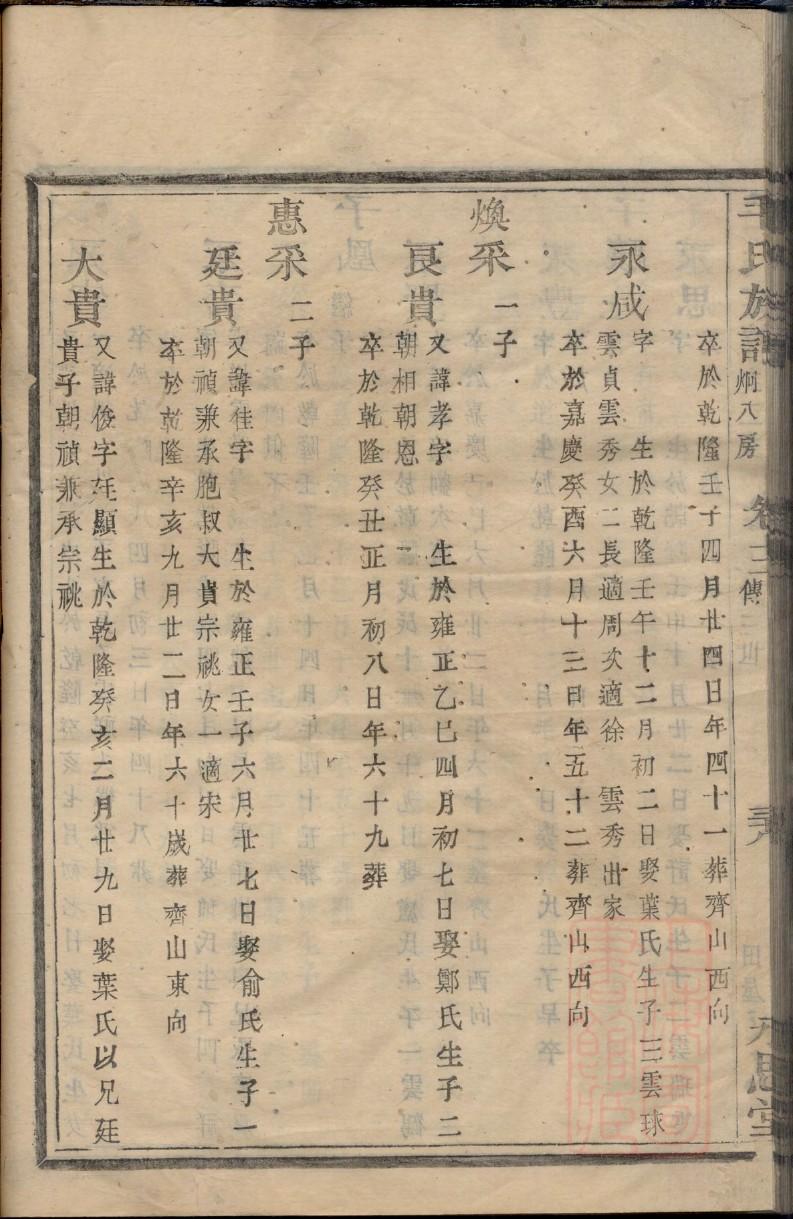 毛氏族譜 炯八房 卷二 傳 永思堂
卒於乾隆壬子四月廿四日年四十一葬齊山西向
永咸 字 生於乾隆壬午十二月初二日娶葉氏生子三雲球
雲貞雲秀女二長適周次適徐 雲秀出家
卒於嘉慶癸酉六月十三日年五十二葬齊山西向
煥采 一子
良貴 又諱孝字 生於雍正乙巳四月初七日娶鄭氏生子二
朝相朝恩
卒於乾隆癸丑正月初八日年六十九葬
惠采 二子
廷貴 又諱佳字 生於雍正壬子六月廿七日娶俞氏生子一
朝禎兼承胞叔大貴宗祧女一適宋
卒於乾隆辛亥九月廿二日年六十歲葬齊山東向
大貴 又諱俊字廷顯生於乾隆癸亥二月廿九日娶葉氏以兄廷
貴子朝禎兼承宗祧